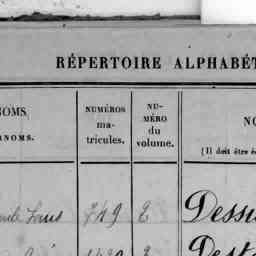 RÉPERTOIRE ALPHABÉT
NOMS
NUMÉROS
ma-
tricules.
NU-
MÉRO
du
volume.
NO
ÉNOMS.
(Il doit être é
Louis 749 2 Dessu
2 Dest